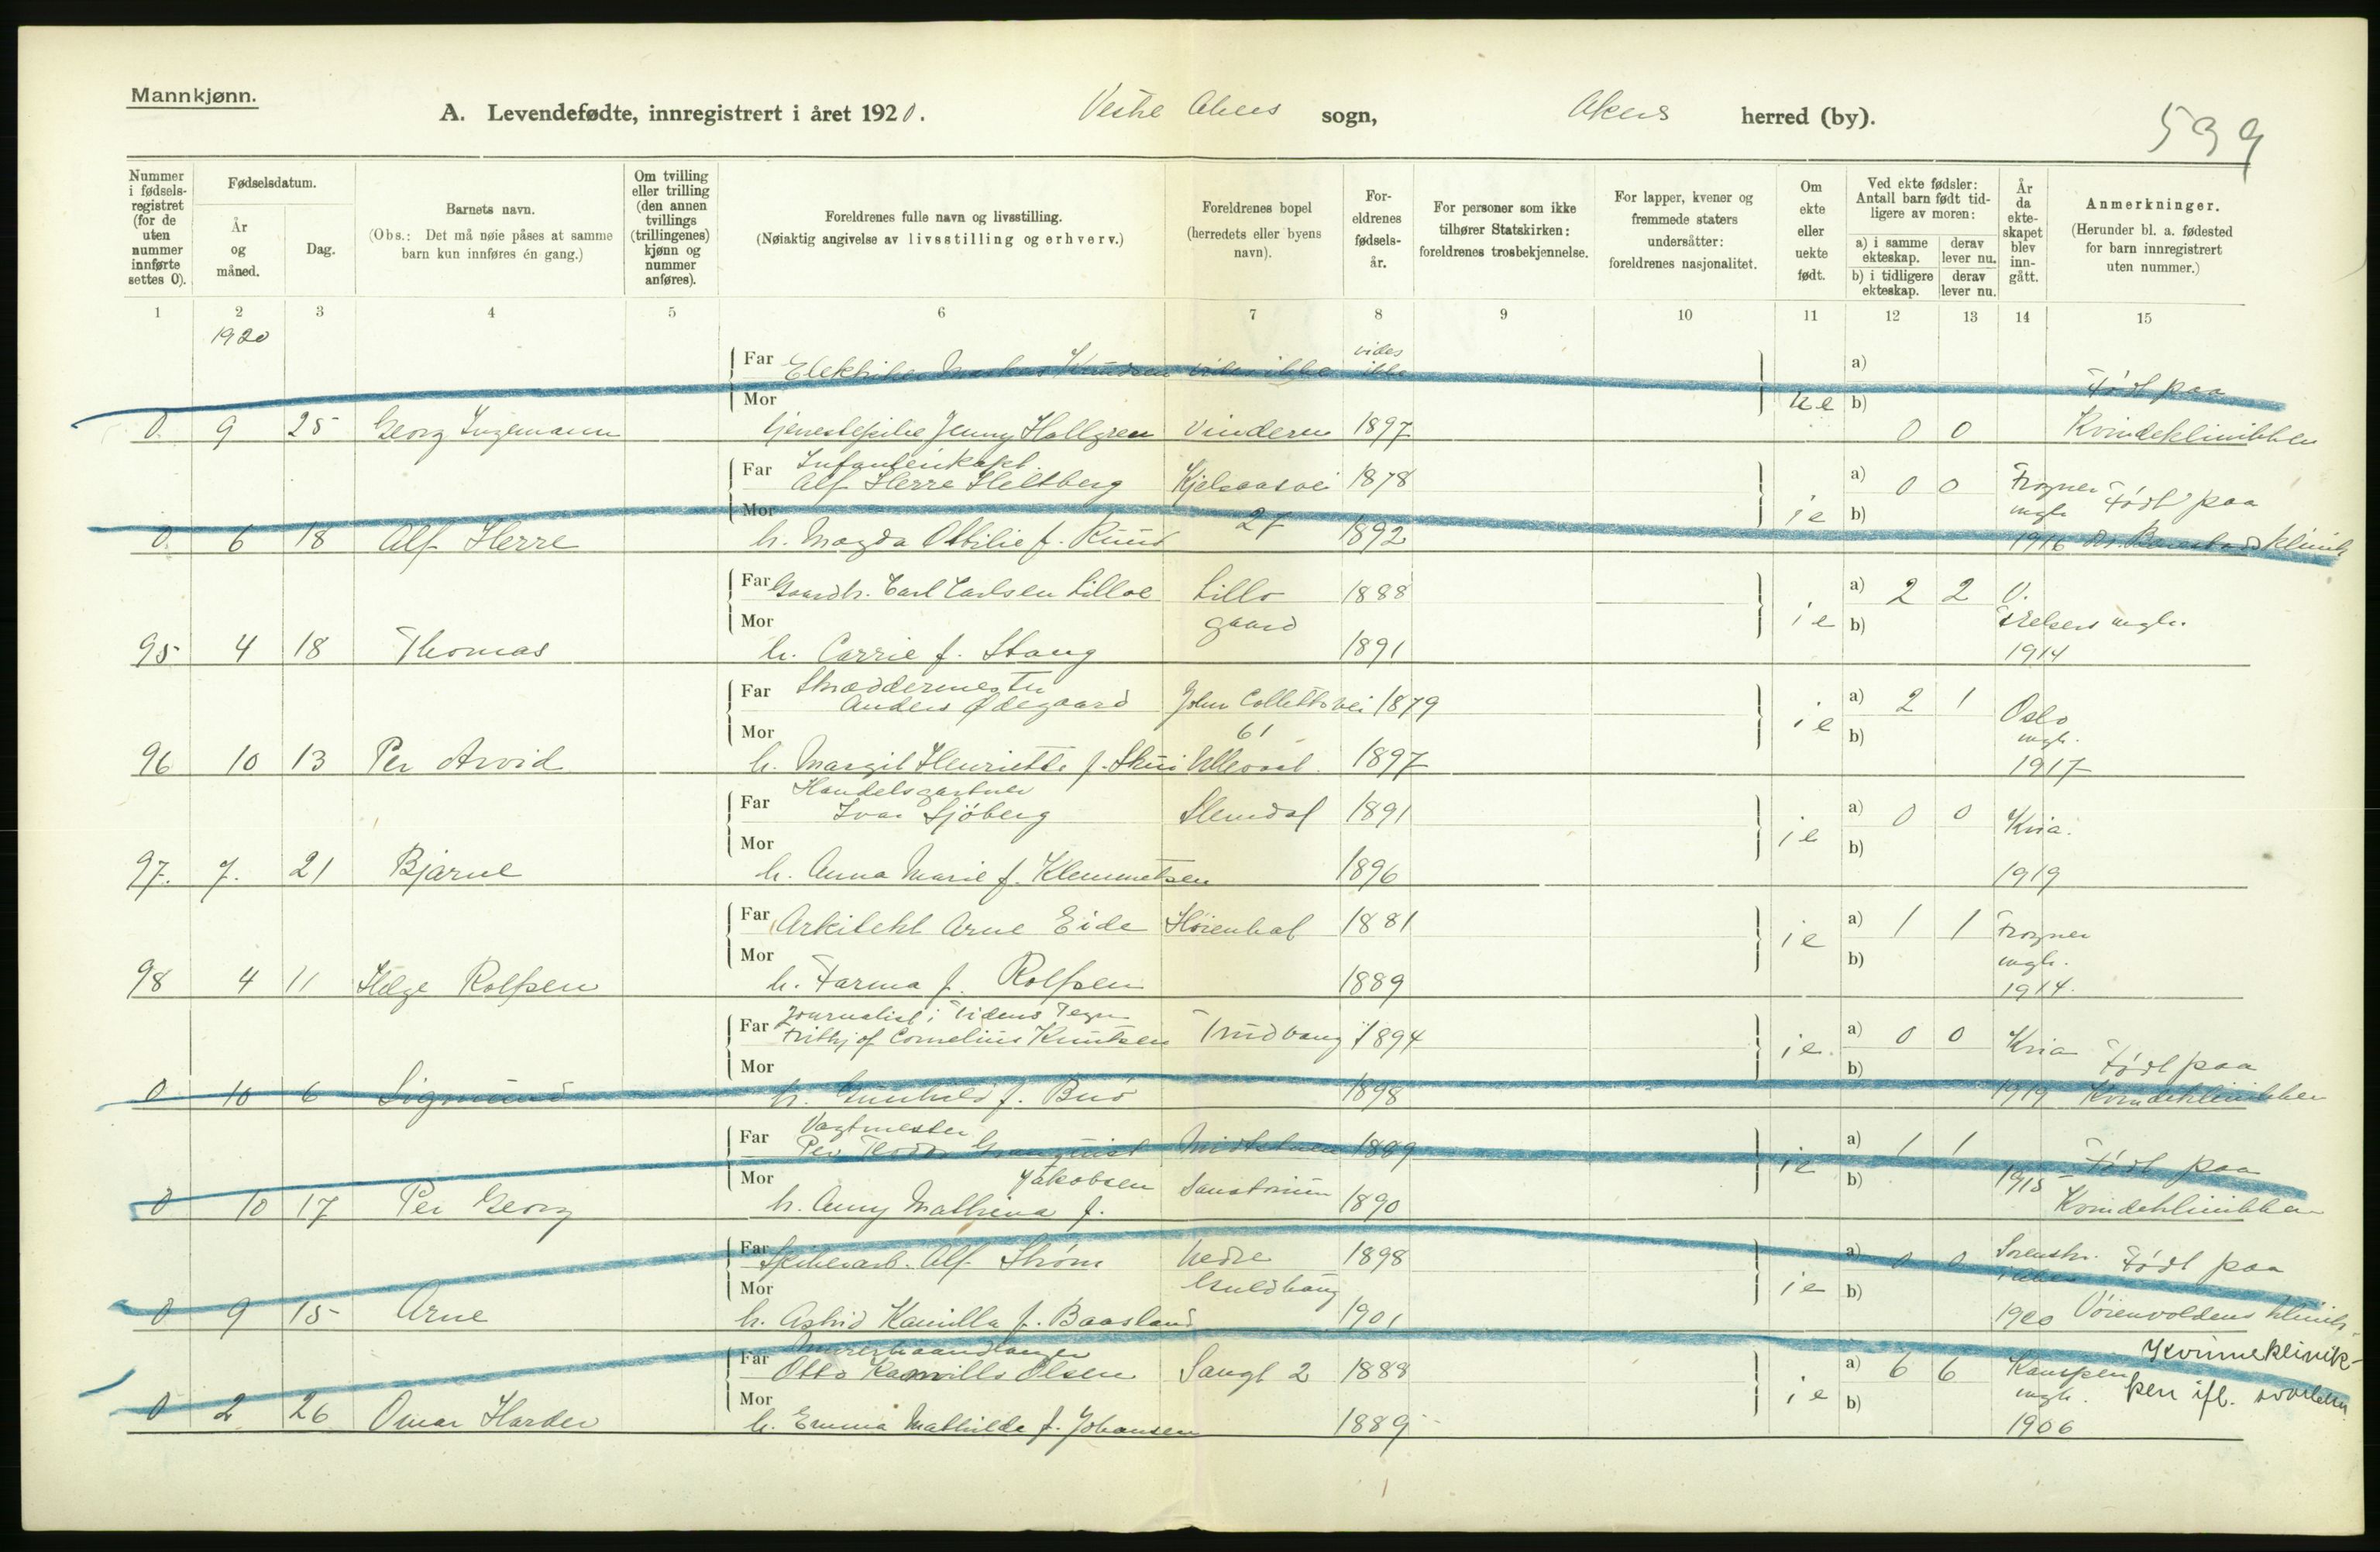 Mannkjønn.
A. Levendefødte, innregistrert i året 1920. Vestre Akers sogn, Akers herred (by).
539
Nummer i fødselsregistret (for de uten nummer innførte settes 0).
Fødselsdatum.
År og måned.
Dag.
Barnets navn.
(Obs.: Det må nøie påses at samme barn kun innføres én gang.)
Om tvilling eller trilling (den annen tvillings (trillingenes) kjønn og nummer anføres).
Foreldrenes fulle navn og livsstilling.
(Nøiaktig angivelse av livsstilling og erhverv.)
Foreldrenes bopel (herredets eller byens navn).
Foreldrenes fødselsår.
For personer som ikke tilhører Statskirken: foreldrenes trosbekjennelse.
For lapper, kvener og fremmede staters undersåtter: foreldrenes nasjonalitet.
Om ekte eller uekte født.
Ved ekte fødsler: Antall barn født tidligere av moren:
a) i samme ekteskap. derav lever nu.
b) i tidligere ekteskap. derav lever nu.
År da ekteskapet blev inngått.
Anmerkninger.
(Herunder bl. a. fødested for barn innregistrert uten nummer.)
1 2 3 4 5 6 7 8 9 10 11 12 13 14 15
1920
Far Knudsen vides ikke vides ikke a) Født paa
Mor ue b)
0 9 25 Georg Ingemann Jenny Hallgren Vinderen 1897 0 0 Kvindeklinikken
Infanterikapt.
Far Alf Herre Heltberg Kjelsaasvei 1878 a) 0 0 Frogner Født paa
Mor 27 ie b) mgh.
0 6 18 Alf Herre h. Magda Ottilie f. Ruud 1892 1916 Klinik
Far Gaardbr. Carl Carlsen Lilloe Lillo 1888 a) 2 2 V.
Mor gaard ie b) Frelsers mgh.
95 4 18 Thomas h. Carrie f. Stang 1891 1914
Skræddermester
Far Anders Ødegaard John Colletts vei 1879 a) 2 1 Oslo
Mor 61 ie b) mgh.
96 10 13 Per Arvid h. Margit Henriette f. Ullevaal 1897 1917
Handelsgartner
Far Ivar Sjöberg Slemdal 1891 a) 0 0 Kria.
Mor ie b)
97. 7. 21 Bjarne h. Anna Marie f. Klemmetsen 1896 1919
Far Arkitekt Arne Eide Høienhal 1881 a) 1 1 Frogner
Mor ie b) mgh.
98 4 11 Helge Rolfsen h. Farma f. Rolfsen 1889 1914.
Journalist i Tidens Tegn
Far Fritjof Cornelius Knutsen Trudvang 1894 a) 0 0 Kria Født paa
Mor ie b)
0 10 6 Sigmund h. Gunhild f. 1898 1919 Kvindeklinikken
Vagtmester
Far Per Granquist Midtstuen 1889 a) 1 1 Født paa
Mor Jakobsen Sanatorium ie b) 1915
0 10 17 Per Georg h. Anny Mathina f. 1890 Kvindeklinikken
Far Alf Strøm Nedre 1898 a) 0 0 Født paa
Mor ie b)
0 9 15 Arne h. Astrid Kamilla f. Baasland 1901 1920 Voienvoldens klinik
Murerhaandlanger Kvinneklinik-
Far Otto Kamillo Olsen Sangt 2 1888 a) 6 6 Kampen ken ifl.
Mor ie b) mgh.
0 2 26 Omar Harder h. Emma Mathilde f. Johansen 1889 1906